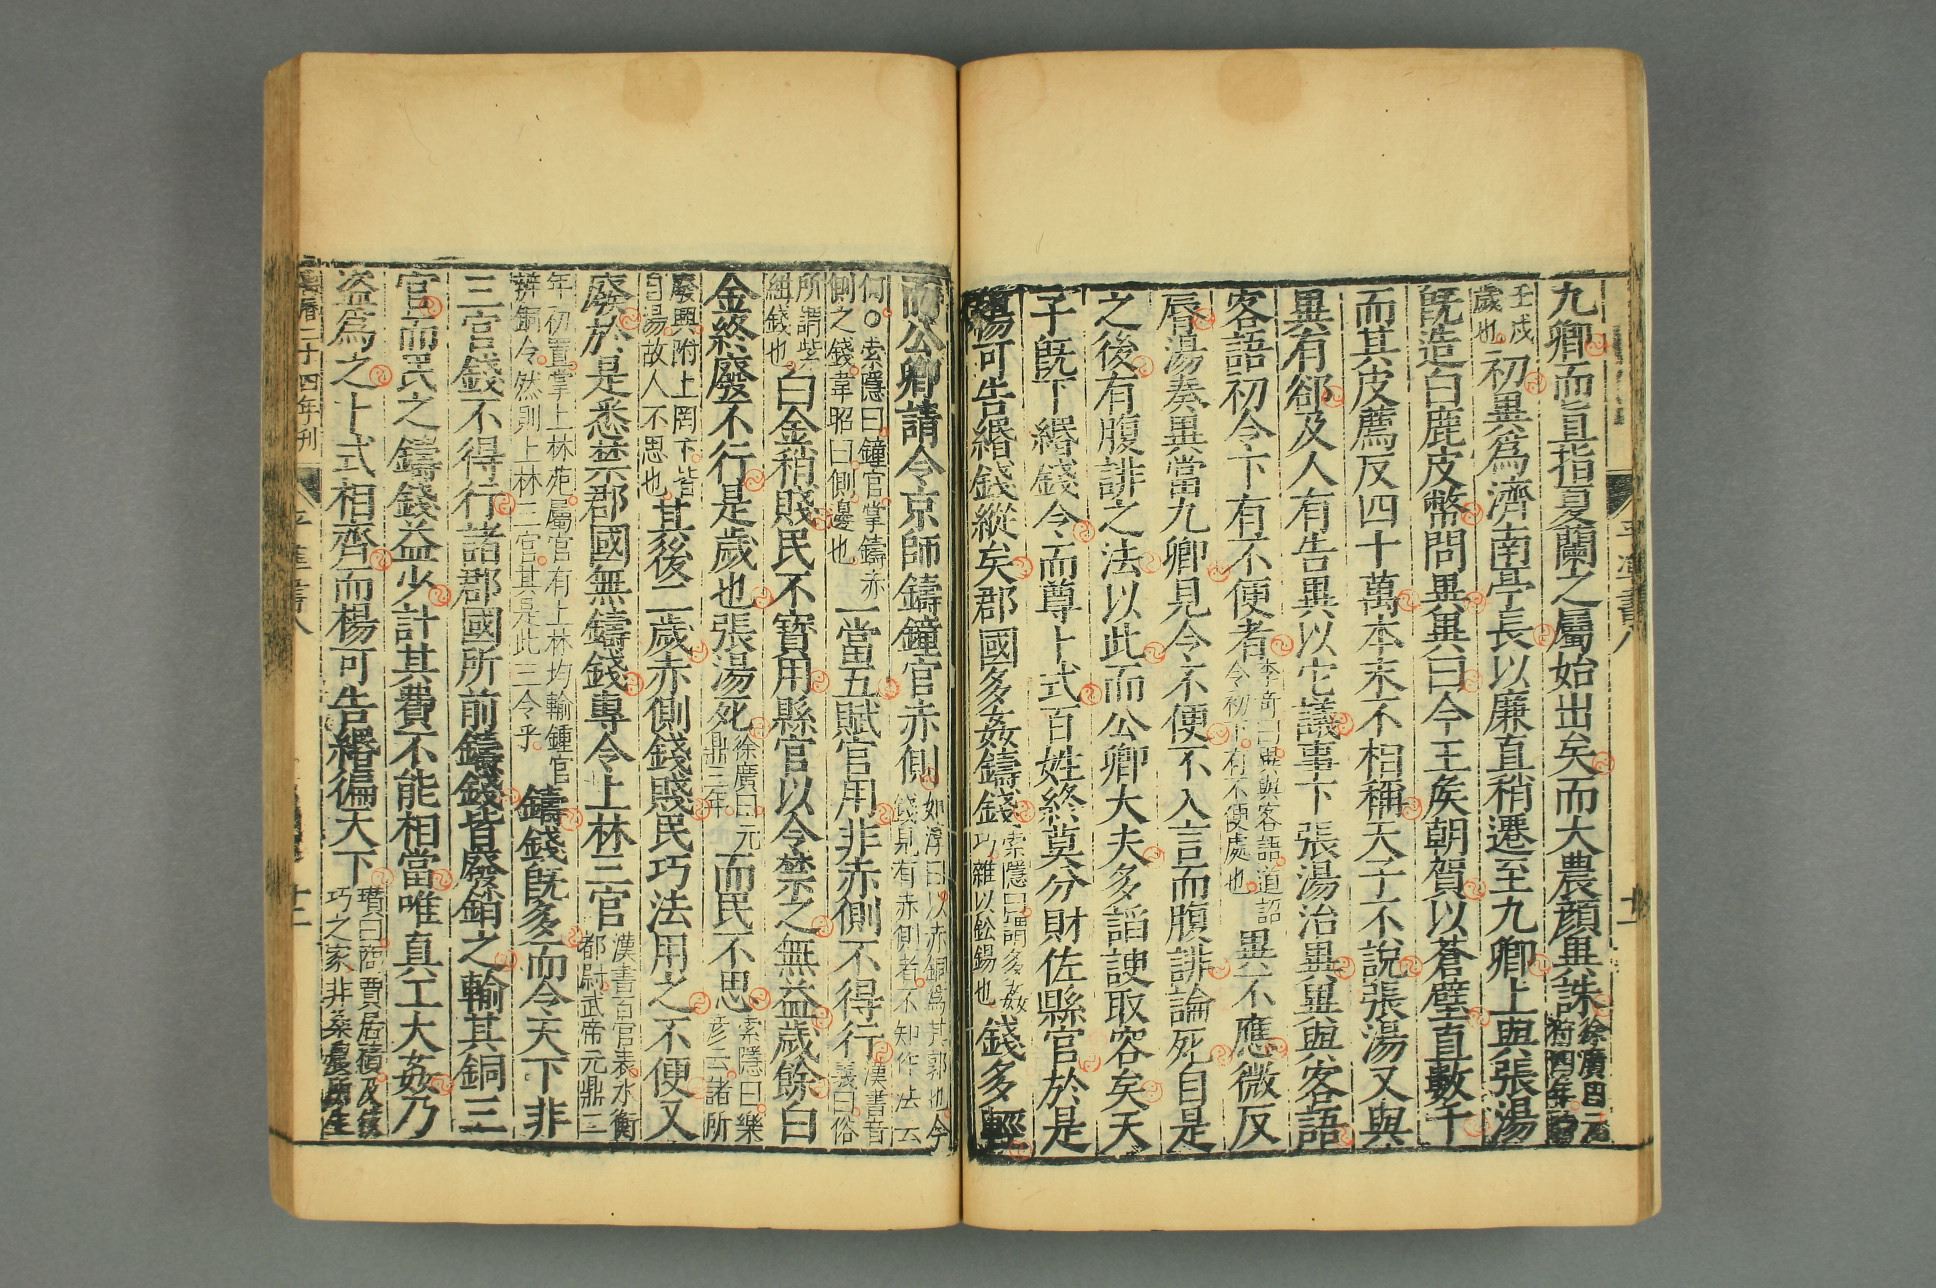 九卿而直指夏蘭之屬始出矣而大農顏異誅徐廣曰元狩四年
壬戌歲也初異爲濟南亭長以廉直稍遷至九卿上與張湯
旣造白鹿皮幣問異異曰今王矦朝賀以蒼璧直數千
而其皮薦反四十萬本末不相稱天子不說張湯又與
異有郤及人有告異以它議事下張湯治異異與客語
客語初令下有不便者李奇曰異與客語道詔令初下有不便處也異不應微反
脣湯奏異當九卿見令不便不入言而腹誹論死自是
之後有腹誹之法以此而公卿大夫多謟諛取容矣天
子旣下緡錢令而尊卜式百姓終莫分財佐縣官於是
楊可告緡錢縱矣郡國多姦鑄錢索隱曰謂多姦巧雜以鈆錫也錢多輕
而公卿請令京師鑄鐘官赤側如淳曰以赤銅爲其郭也今錢見有赤側者不知作法云
何○索隱曰鐘官掌鑄赤側之錢韋昭曰側邊也一當五賦官用非赤側不得行漢書音義曰俗
所謂紫紺錢也白金稍賤民不寶用縣官以令禁之無益歲餘白
金終廢不行是歲也張湯死徐廣曰元鼎三年而民不思索隱曰樂彦云諸所
廢興附上罔下皆自湯故人不思也其後二歲赤側錢賤民巧法用之不便又
廢於是悉禁郡國無鑄錢專令上林三官漢書百官表水衡都尉武帝元鼎二
年初置掌上林苑屬官有上林均輸鍾官辨銅令然則上林三官其是此三令乎鑄錢旣多而令天下非
三官錢不得行諸郡國所前鑄錢皆廢銷之輸其銅三
官而民之鑄錢益少計其費不能相當唯真工大姦乃
盜爲之卜式相齊而楊可告緡徧天下瓚曰商賈居積及伎巧之家非桑農所生